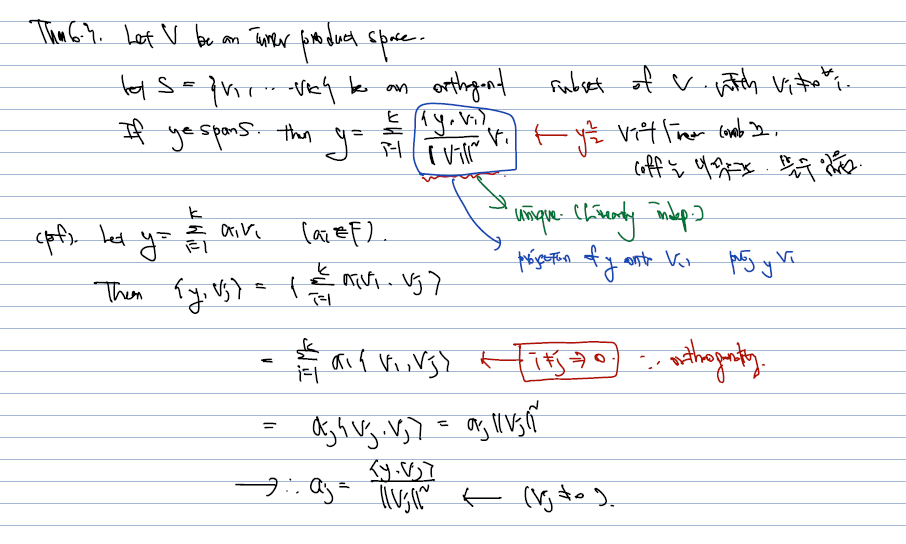 Thm 6.3. Let V be an inner product space.
Let S = {v₁, ... vₖ} be an orthogonal subset of V. with vᵢ ≠ 0 ∀i.
If y ∈ span S. then y = Σ_{i=1}^{k} ⟨y, vᵢ⟩/‖vᵢ‖² vᵢ ← y를 vᵢ의 linear comb로,
coeff는
unique. (linearly indep.)
projection of y onto vᵢ, proj y vᵢ
(pf). Let y = Σ_{i=1}^{k} aᵢvᵢ (aᵢ ∈ F).
Then ⟨y, vⱼ⟩ = ⟨Σ_{i=1}^{k} aᵢvᵢ, vⱼ⟩
= Σ_{i=1}^{k} aᵢ⟨vᵢ, vⱼ⟩ ← i≠j ⇒ 0. ∵ orthogonality.
= aⱼ⟨vⱼ, vⱼ⟩ = aⱼ‖vⱼ‖²
→ ∴ aⱼ = ⟨y, vⱼ⟩/‖vⱼ‖² ← (vⱼ ≠ 0).